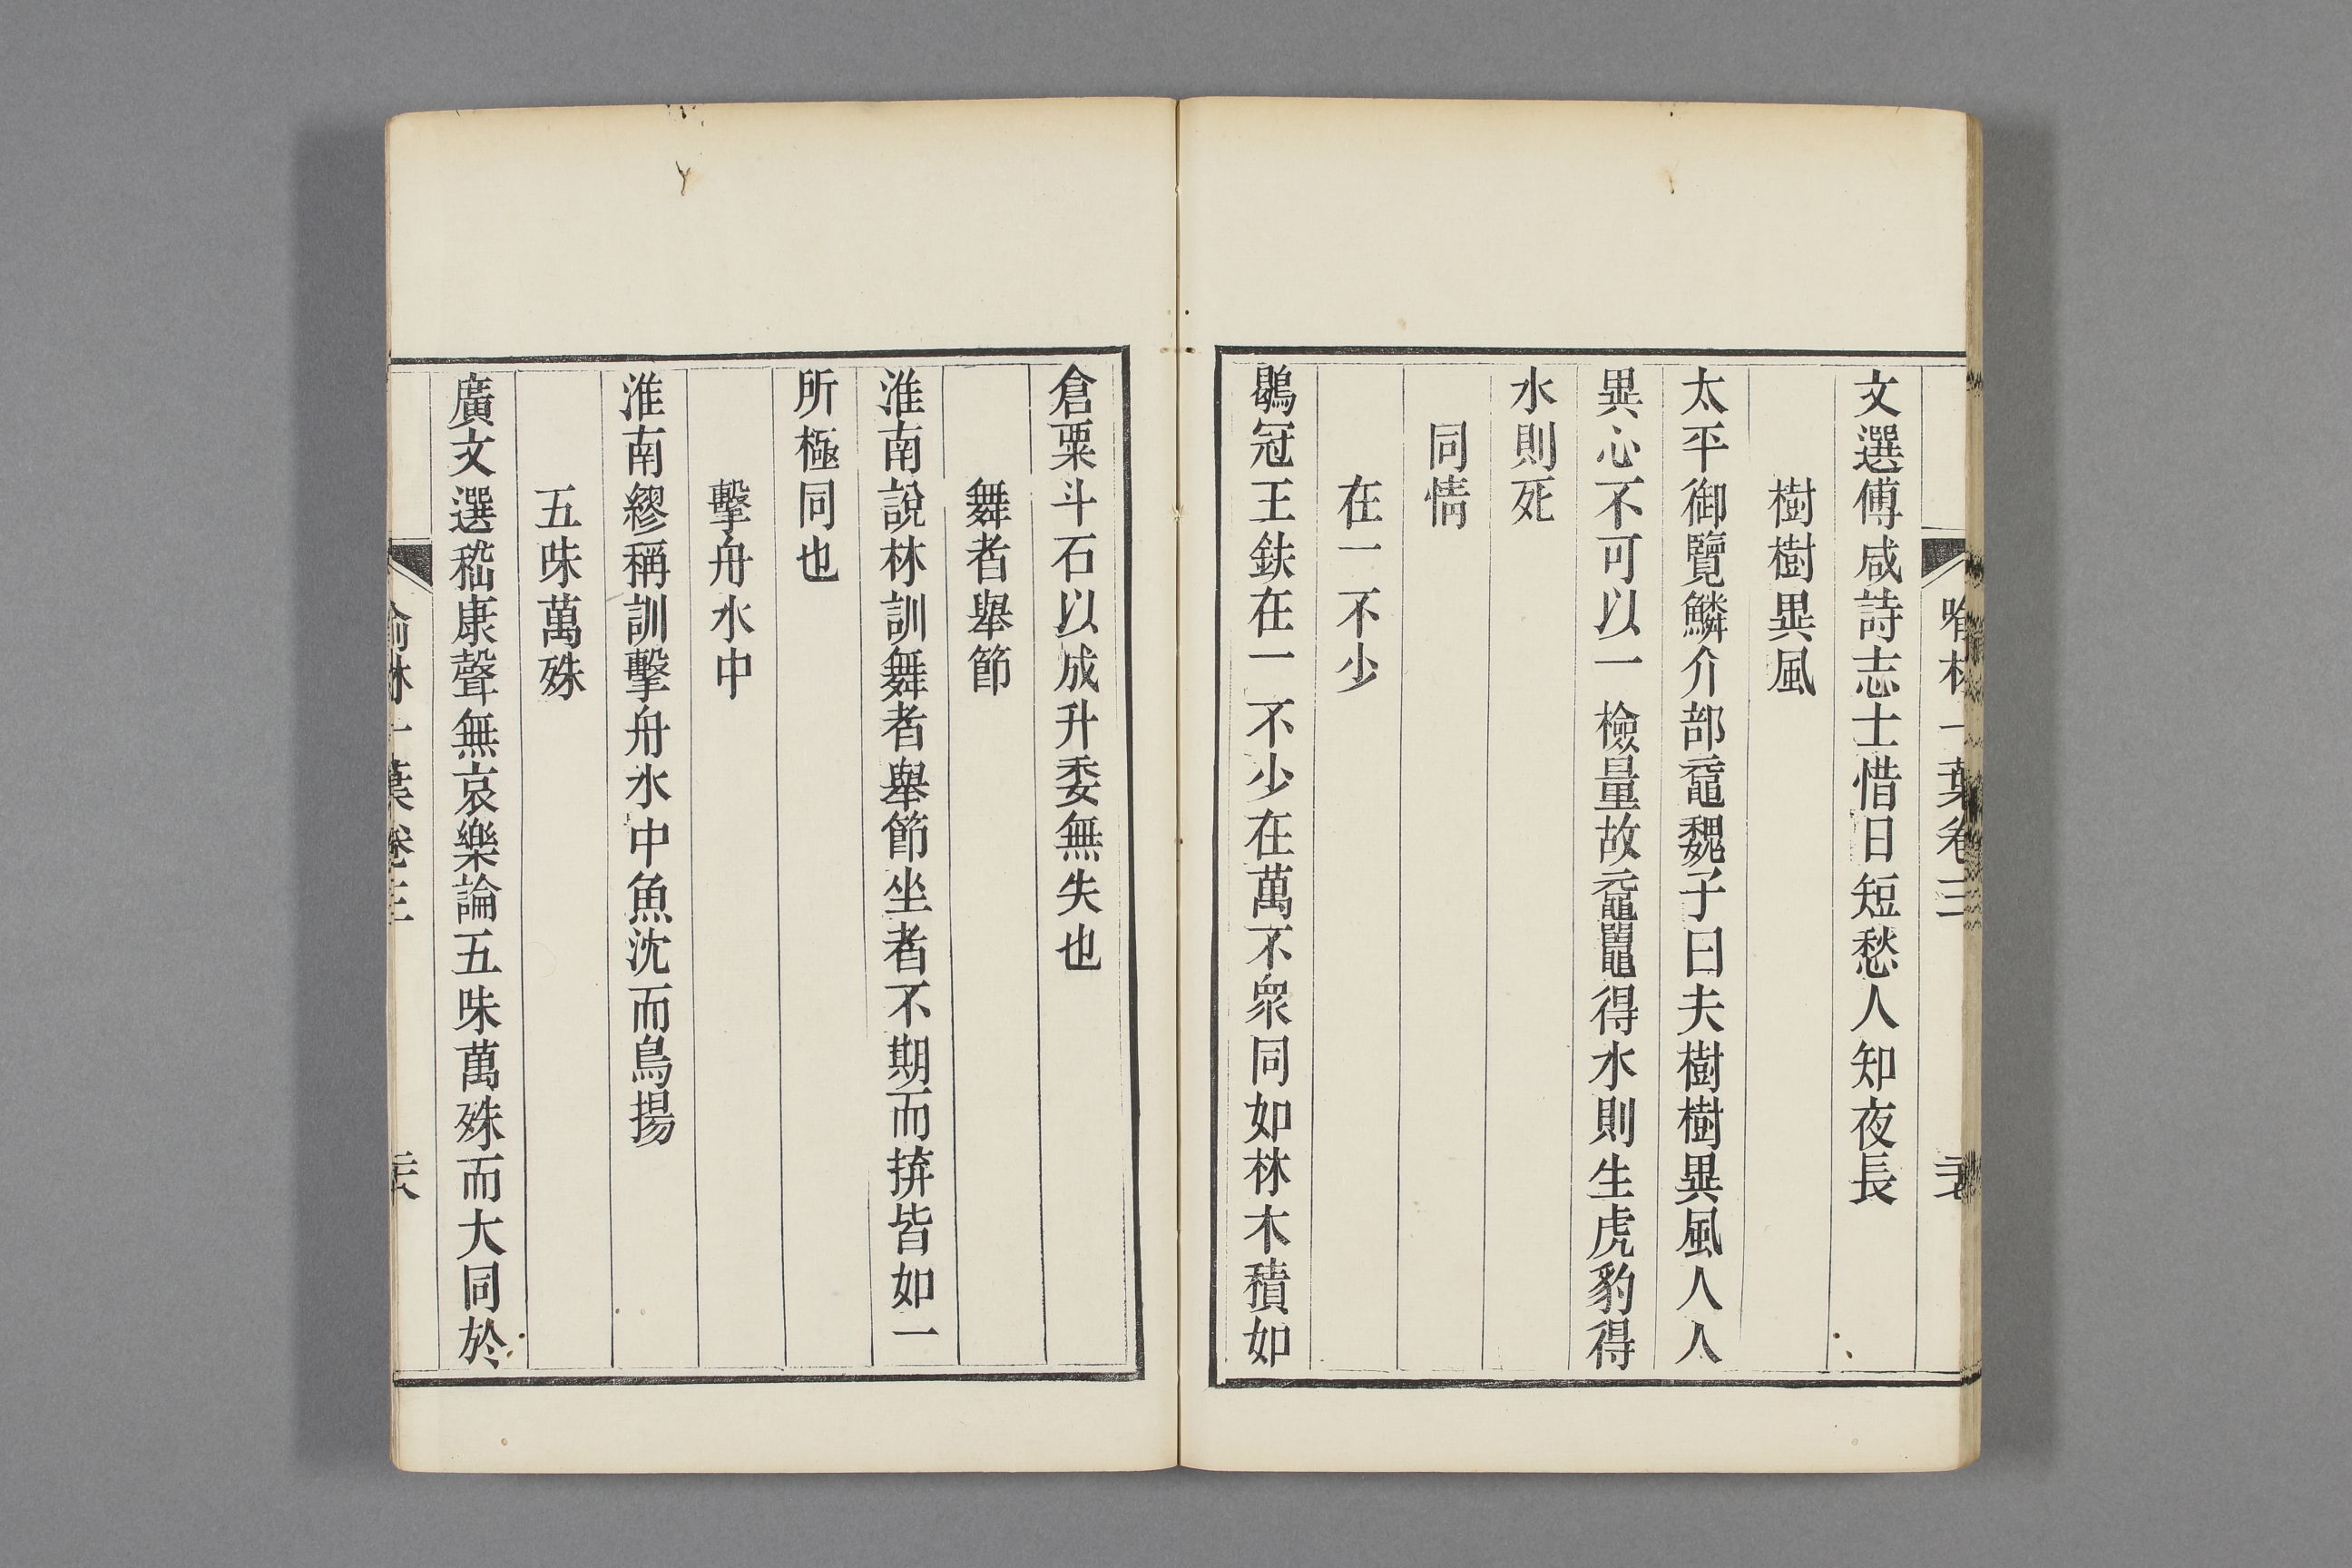 喻林一葉卷三
文選傅咸詩志士惜日短愁人知夜長
樹樹異風
太平御覽鱗介部黿魏子曰夫樹樹異風人人
異心不可以一檢量故黿鼉得水則生虎豹得
水則死
同情
在一不少
鶡冠王鈇在一不少在萬不眾同如林木積如
倉粟斗石以成升委無失也
舞者舉節
淮南說林訓舞者舉節坐者不期而拚皆如一
所極同也
擊舟水中
淮南繆稱訓擊舟水中魚沈而鳥揚
五味萬殊
廣文選嵇康聲無哀樂論五味萬殊而大同於
喻林一葉卷三